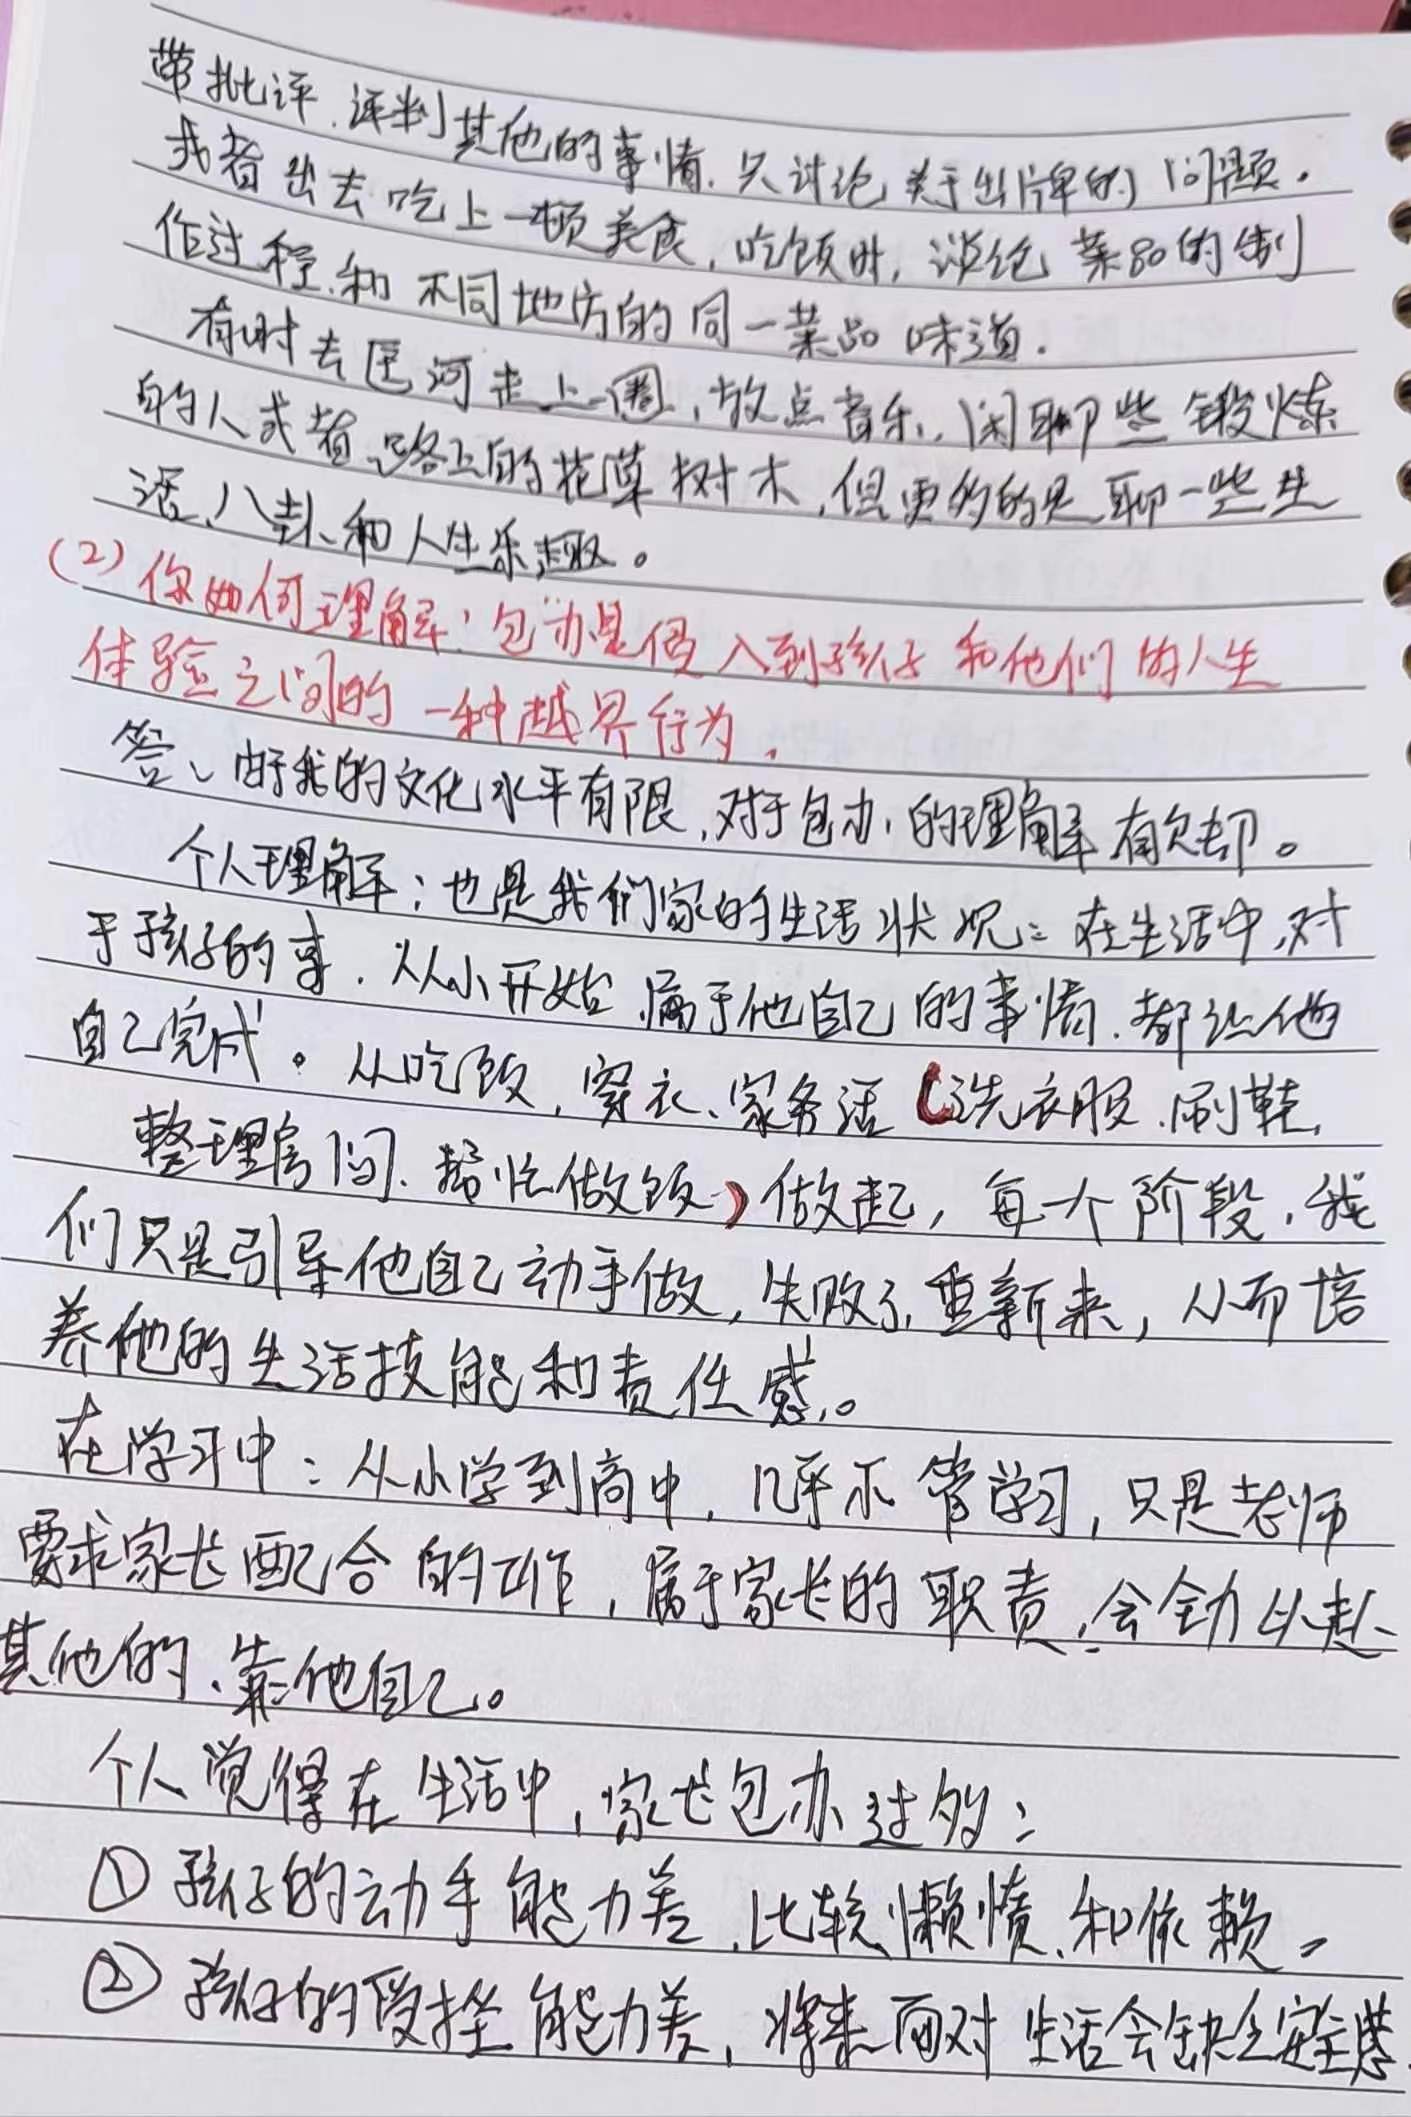 带批评、评判其他的事情.只讨论关于出牌的问题.
或者出去吃上一顿美食,吃饭时,谈论菜品的制
作过程.和不同地方的同一菜品味道.
有时去河走上一圈,放点音乐,闲聊些锻炼
的人或者路上的花草树木,但更多的是聊一些生
活、八卦、和人生乐趣。
(2)你如何理解:包办是侵入到孩子和他们的人生
体验之间的一种越界行为.
答、由于我的文化水平有限,对于包办的理解有欠却。
个人理解:也是我们家的生活状况:在生活中,对
于孩子的事.从小开始属于他自己的事情.都让他
自己完成。从吃饭,穿衣、家务活(洗衣服.刷鞋,
整理房间.帮忙做饭)做起,每一个阶段,我
们只是引导他自己动手做,失败了,重新来,从而培
养他的生活技能和责任感。
在学习中:从小学到高中,几乎不管学习,只是老师
要求家长配合的工作,属于家长的职责,会全力以赴、
其他的、靠他自己。
个人觉得在生活中,家长包办过多:
①孩子的动手能力差,比较懒惰、和依赖。
②孩子的受挫能力差,将来面对生活会缺乏安全感.